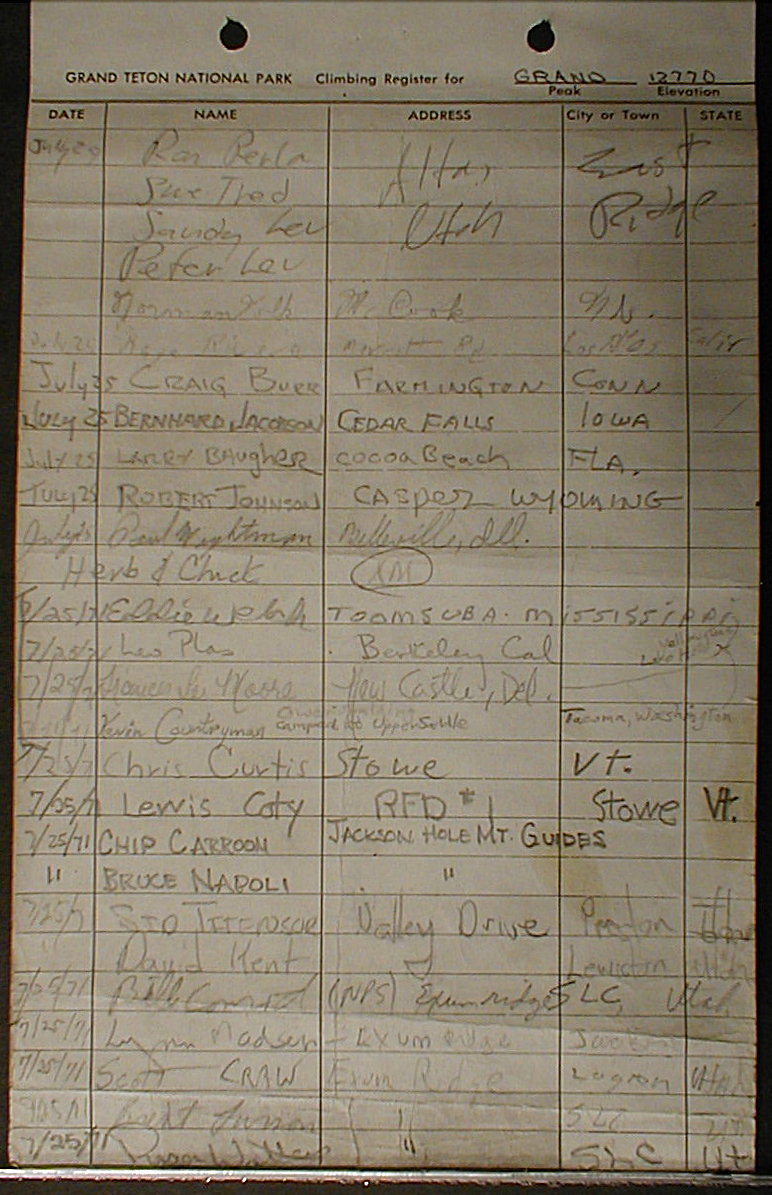 GRAND TETON NATIONAL PARK Climbing Register for GRAND 12770
Peak Elevation
DATE NAME ADDRESS City or Town STATE
July Ron Perla Alta, East
Sue Thed
Sandy Lev Utah Ridge
Peter Lev
Norman Mc Cook
July 25 Rd Los Calif
July 25 CRAIG BURR FARMINGTON CONN
JULY 25 BERNHARD JACOBSON CEDAR FALLS IOWA
July 25 LARRY BAUGHER COCOA Beach FLA.
JULY 25 ROBERT JOHNSON CASPER WYOMING
Paul Wightman Ill.
Herb & Chuck
7/25/71 Eddie Welch TOOMSUBA. MISSISSIPPI
7/25/71 Leo Plas Berkeley Cal
7/25/71 Moore New Castle, Del.
Kevin Countryman camped at Upper Saddle Tacoma, Washington
7/25/71 Chris Curtis Stowe Vt.
7/25/71 Lewis Coty RFD #1 Stowe Vt.
7/25/71 CHIP CARROON JACKSON HOLE MT. GUIDES
" BRUCE NAPOLI "
7/25/71 Valley Drive Preston
David Kent Lewiston Utah
7/25/71 Bill Conrod (NPS) Exum ridge SLC, Utah
7/25/71 Lynn Madsen Exum Ridge
7/25/71 Scott CRAW Exum Ridge Logan Utah
Larson " SLC
7/25/71 " SLC Ut